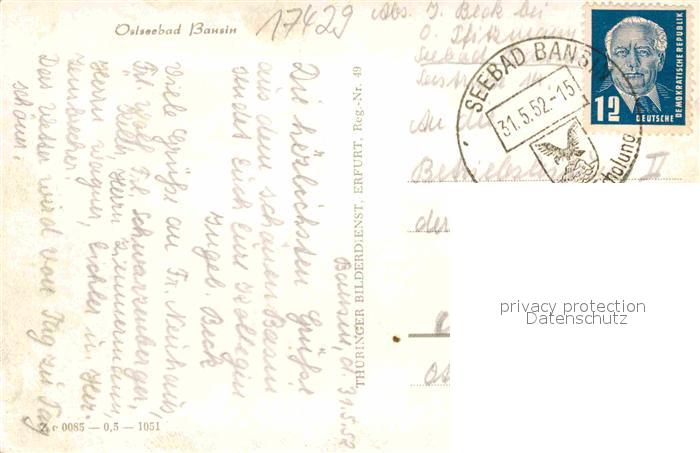 Ostseebad Bansin
17429
Abs. I. Beck bei
O. Pfitzmann
Seebad
SEEBAD BANSIN
31.5.52.-15
holung
DEUTSCHE DEMOKRATISCHE REPUBLIK
12 DEUTSCHE
An die
II
der
THÜRINGER BILDERDIENST, ERFURT, Reg.-Nr. 49
Bansin, d. 31.5.52
Die herzlichsten Grüße
aus dem schönen Bansin
sendet Euch Eure Kollegin
Ingeb. Beck
Viele Grüße an Fr. Neuhaus,
Frl. Wolf, Frl. Schwarzenberger,
Herrn Zimmermann,
Herrn Wagner,
Das Wetter wird von Tag zu Tag
schöner!
0085 — 0,5 — 1051
privacy protection
Datenschutz